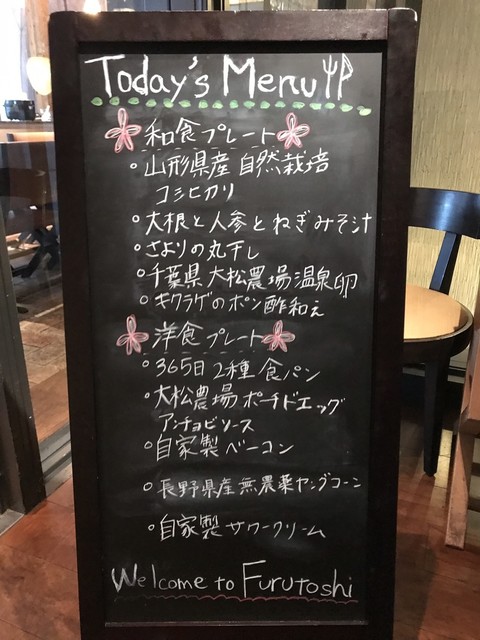 Today's Menu
和食プレート
○山形県産 自然栽培
コシヒカリ
○大根と人参とねぎみそ汁
○さよりの丸干し
○千葉県大松農場温泉卵
○キクラゲのポン酢和え
洋食プレート
○365日 2種 食パン
○大松農場ポーチドエッグ
アンチョビソース
○自家製ベーコン
○長野県産無農薬ヤングコーン
○自家製サワークリーム
Welcome to Furutoshi